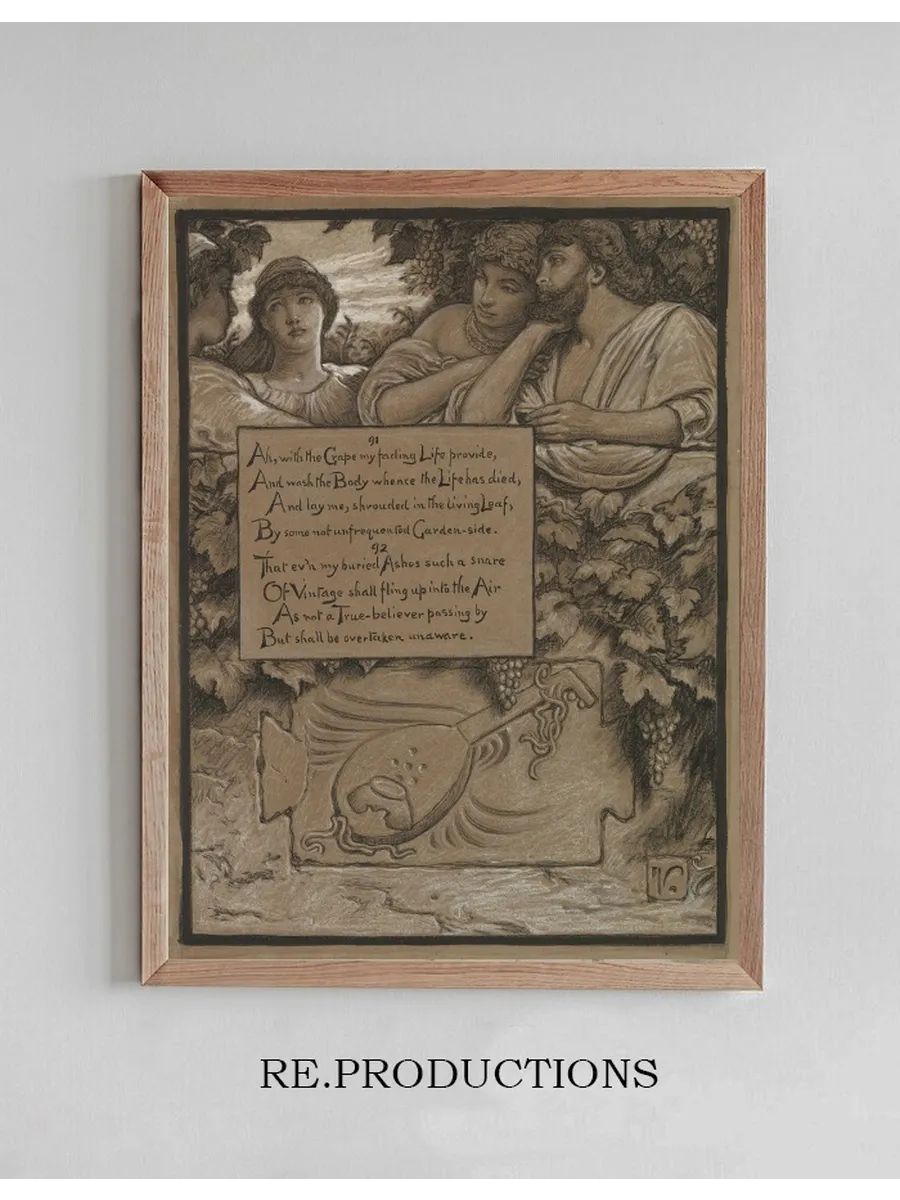 91
Ah, with the Grape my fading Life provide,
And wash the Body whence the Life has died,
And lay me, shrouded in the living Leaf,
By some not unfrequented Garden-side.
92
That ev'n my buried Ashes such a snare
Of Vintage shall fling up into the Air
As not a True-believer passing by
But shall be overtaken unaware.
V.
RE.PRODUCTIONS